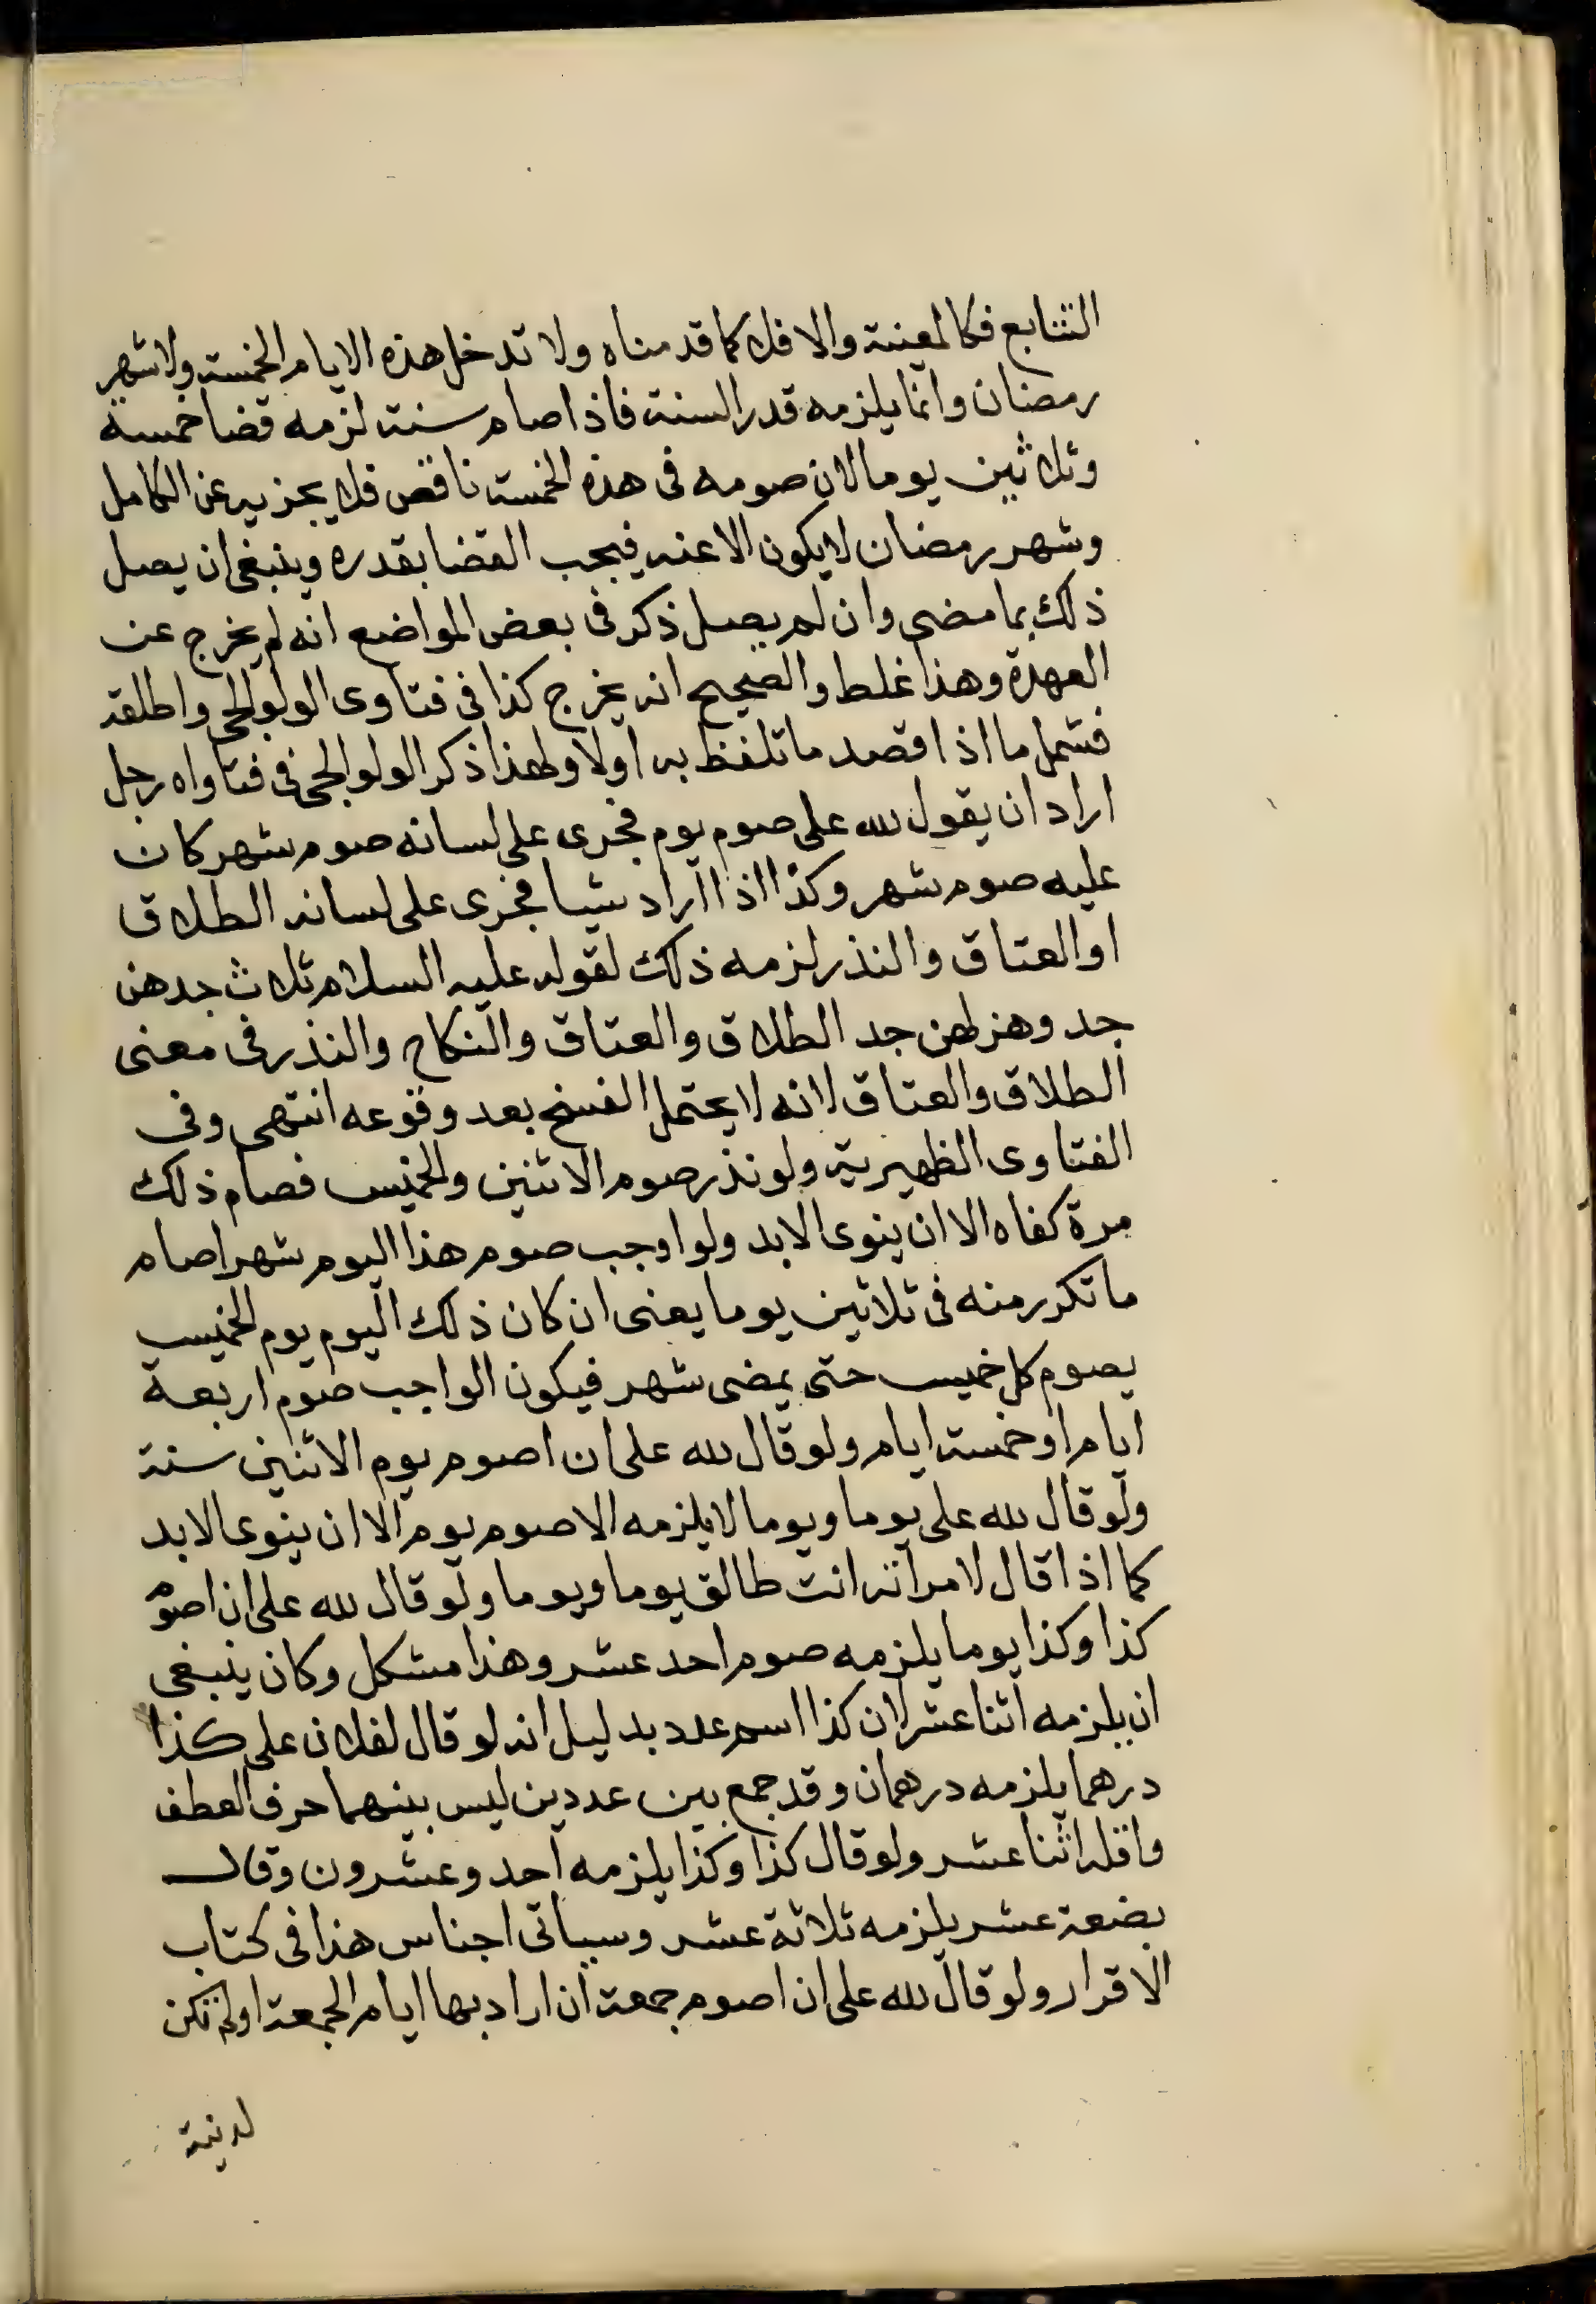 التتابع فكالمعينة والا فلا كما قدمناه ولا تدخل هذه الايام الخمسة ولا شهر
رمضان وانما يلزمه قدر السنة فاذا صام سنة لزمه قضا خمسة
وثلاثين يوما لان صومه فى هذه الخمسة ناقص فلا يجزيه عن الكامل
وشهر رمضان لا يكون الا عنه فيجب القضا بقدره وينبغى ان يصل
ذلك بما مضى وان لم يصل ذكر فى بعض المواضع انه لم يخرج عن
العهدة وهذا غلط والصحيح انه يخرج كذا فى فتاوى الولوالجى واطلقه
فشمل ما اذا قصد ما تلفظ به اولا ولهذا ذكر الولوالجى فى فتاواه رجل
اراد ان يقول لله على صوم يوم فجرى على لسانه صوم شهر كان
عليه صوم شهر وكذا اذا اراد شيا فجرى على لسانه الطلاق
او العتاق والنذر لزمه ذلك لقوله عليه السلام ثلاث جدهن
جد وهزلهن جد الطلاق والعتاق والنكاح والنذر فى معنى
الطلاق والعتاق لانه لا يحتمل الفسخ بعد وقوعه انتهى وفى
الفتاوى الظهيرية ولو نذر صوم الاثنين والخميس فصام ذلك
مرة كفاه الا ان ينوى الابد ولو اوجب صوم هذا اليوم شهرا صام
ما تكرر منه فى ثلاثين يوما يعنى ان كان ذلك اليوم يوم الخميس
يصوم كل خميس حتى يمضى شهر فيكون الواجب صوم اربعة
ايام او خمسة ايام ولو قال لله على ان اصوم يوم الاثنين سنة
ولو قال لله على يوما ويوما لا يلزمه الا صوم يوم الا ان ينوى الابد
كما اذا قال لامراته انت طالق يوما ويوما ولو قال لله على ان اصوم
كذا وكذا يوما يلزمه صوم احد عشر وهذا مشكل وكان ينبغى
ان يلزمه اثنا عشر لان كذا اسم عدد بدليل انه لو قال لفلان على كذا
درهما يلزمه درهمان وقد جمع بين عددين ليس بينهما حرف العطف
واقله اثنا عشر ولو قال كذا وكذا يلزمه احد وعشرون وقال
بضعة عشر يلزمه ثلاثة عشر وسياتى اجناس هذا فى كتاب
الاقرار ولو قال لله على ان اصوم جمعة ان اراد بها ايام الجمعة او لم تكن
له نية